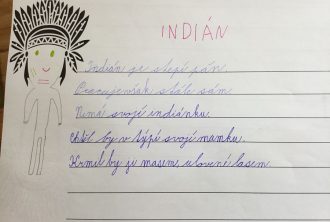 INDIÁN
Indián je stepí pán.
však stále sám
Nemá svojí indiánku.
Chtěl by v týpí svojí mamku.
Krmil by ji masem, ulovené lasem.